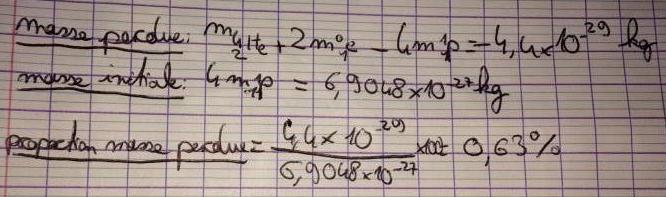 masse perdue: m ⁴₂He + 2m ⁰₁e - 4m ¹₁p = -4,4×10⁻²⁹ kg
masse initiale: 4m ¹₁p = 6,9048×10⁻²⁷ kg
proportion masse perdue = 4,4×10⁻²⁹ / 6,9048×10⁻²⁷ ×100 = 0,63%